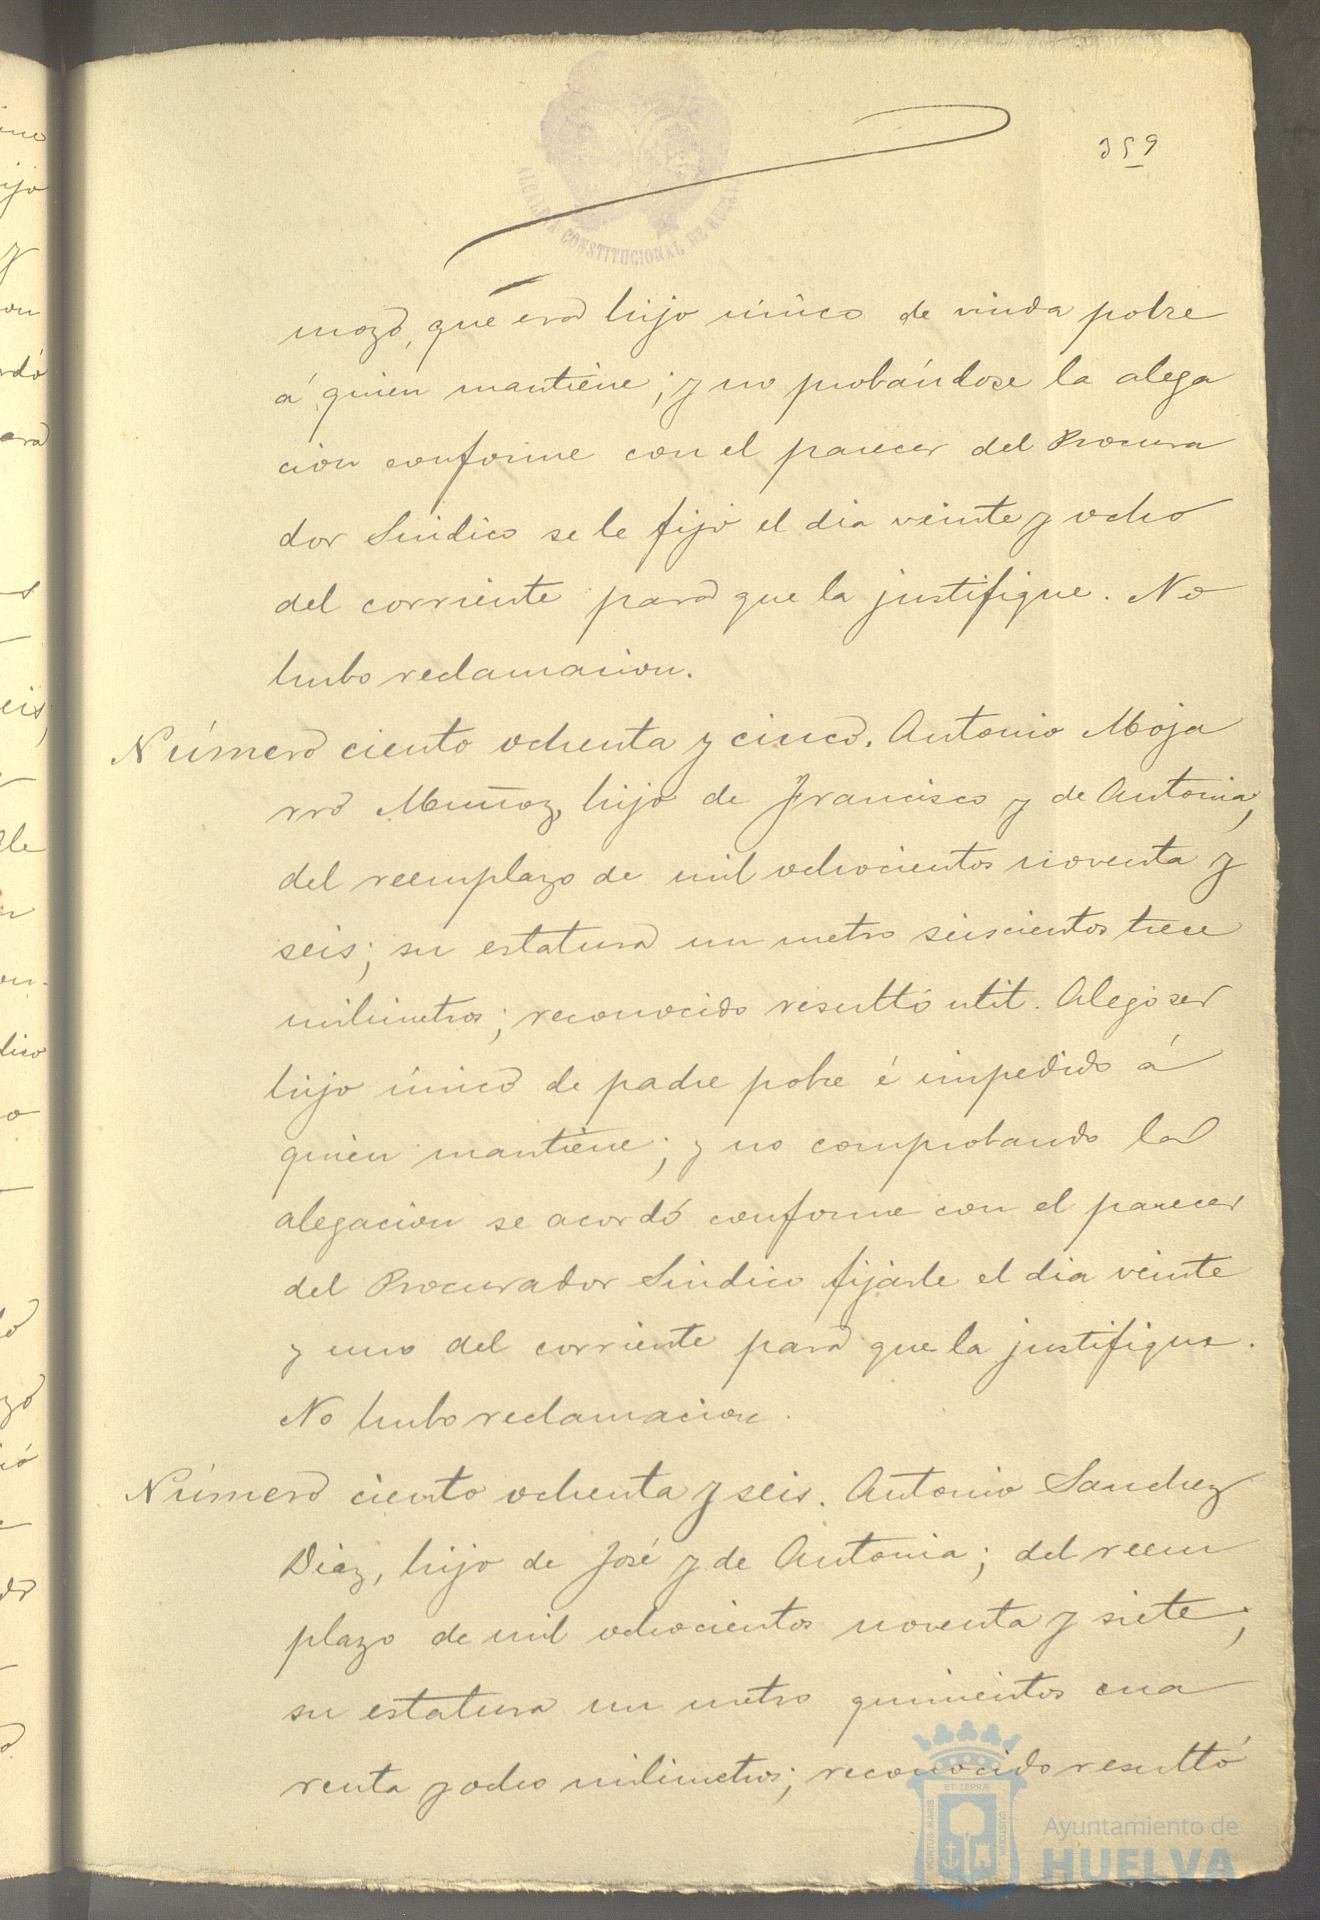 359
ALCALDIA CONSTITUCIONAL DE HUELVA
mozo, que era hijo único de viuda pobre
á quien mantiene; y no probándose la alega
cion conforme con el parecer del Procura
dor Sindico se le fijó el dia veinte y ocho
del corriente para que la justifique. No
hubo reclamacion.
Número ciento ochenta y cinco. Antonio Moja
rro Muñoz, hijo de Francisco y de Antonia,
del reemplazo de mil ochocientos noventa y
seis; su estatura un metro seiscientos trece
milimetros; reconocido resultó util. Alegó ser
hijo único de padre pobre é impedido á
quien mantiene; y no comprobando la
alegacion se acordó conforme con el parecer
del Procurador Sindico fijarle el dia veinte
y uno del corriente para que la justifique.
No hubo reclamacion.
Número ciento ochenta y seis. Antonio Sanchez
Diaz, hijo de José y de Antonia; del reem
plazo de mil ochocientos noventa y siete;
su estatura un metro quinientos cua
renta y ocho milimetros; reconocido resultó
PORTUS MARIS
ET TERRÆ
CUSTODIA
Ayuntamiento de
HUELVA